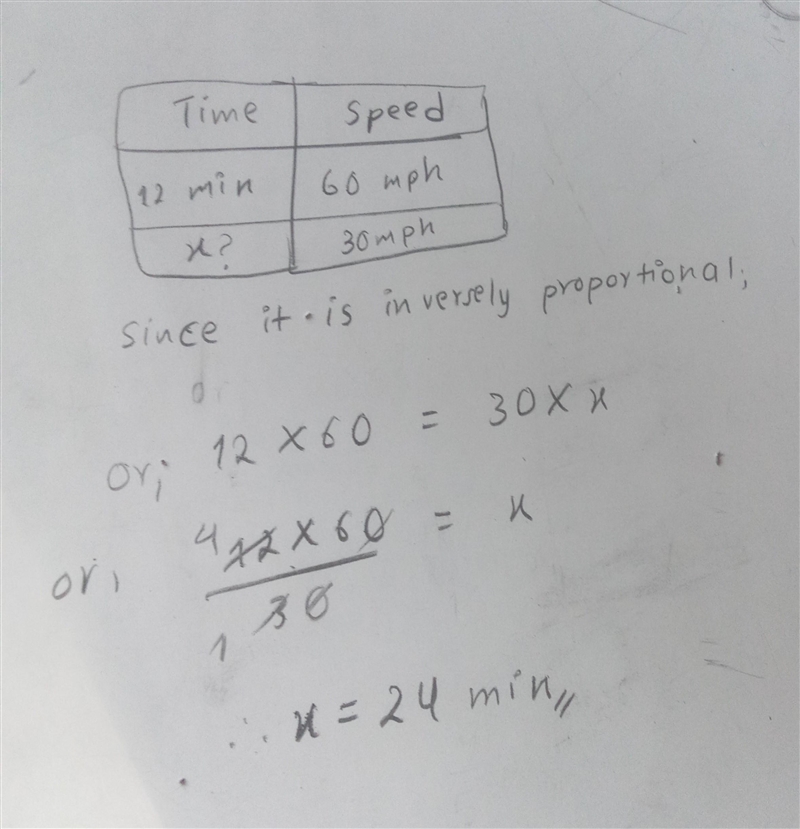 Time Speed
12 min 60 mph
x? 30mph
since it is inversely proportional;
or; 12 × 60 = 30 × x
or, 4 12 × 60 = x
1 30
∴ x = 24 min